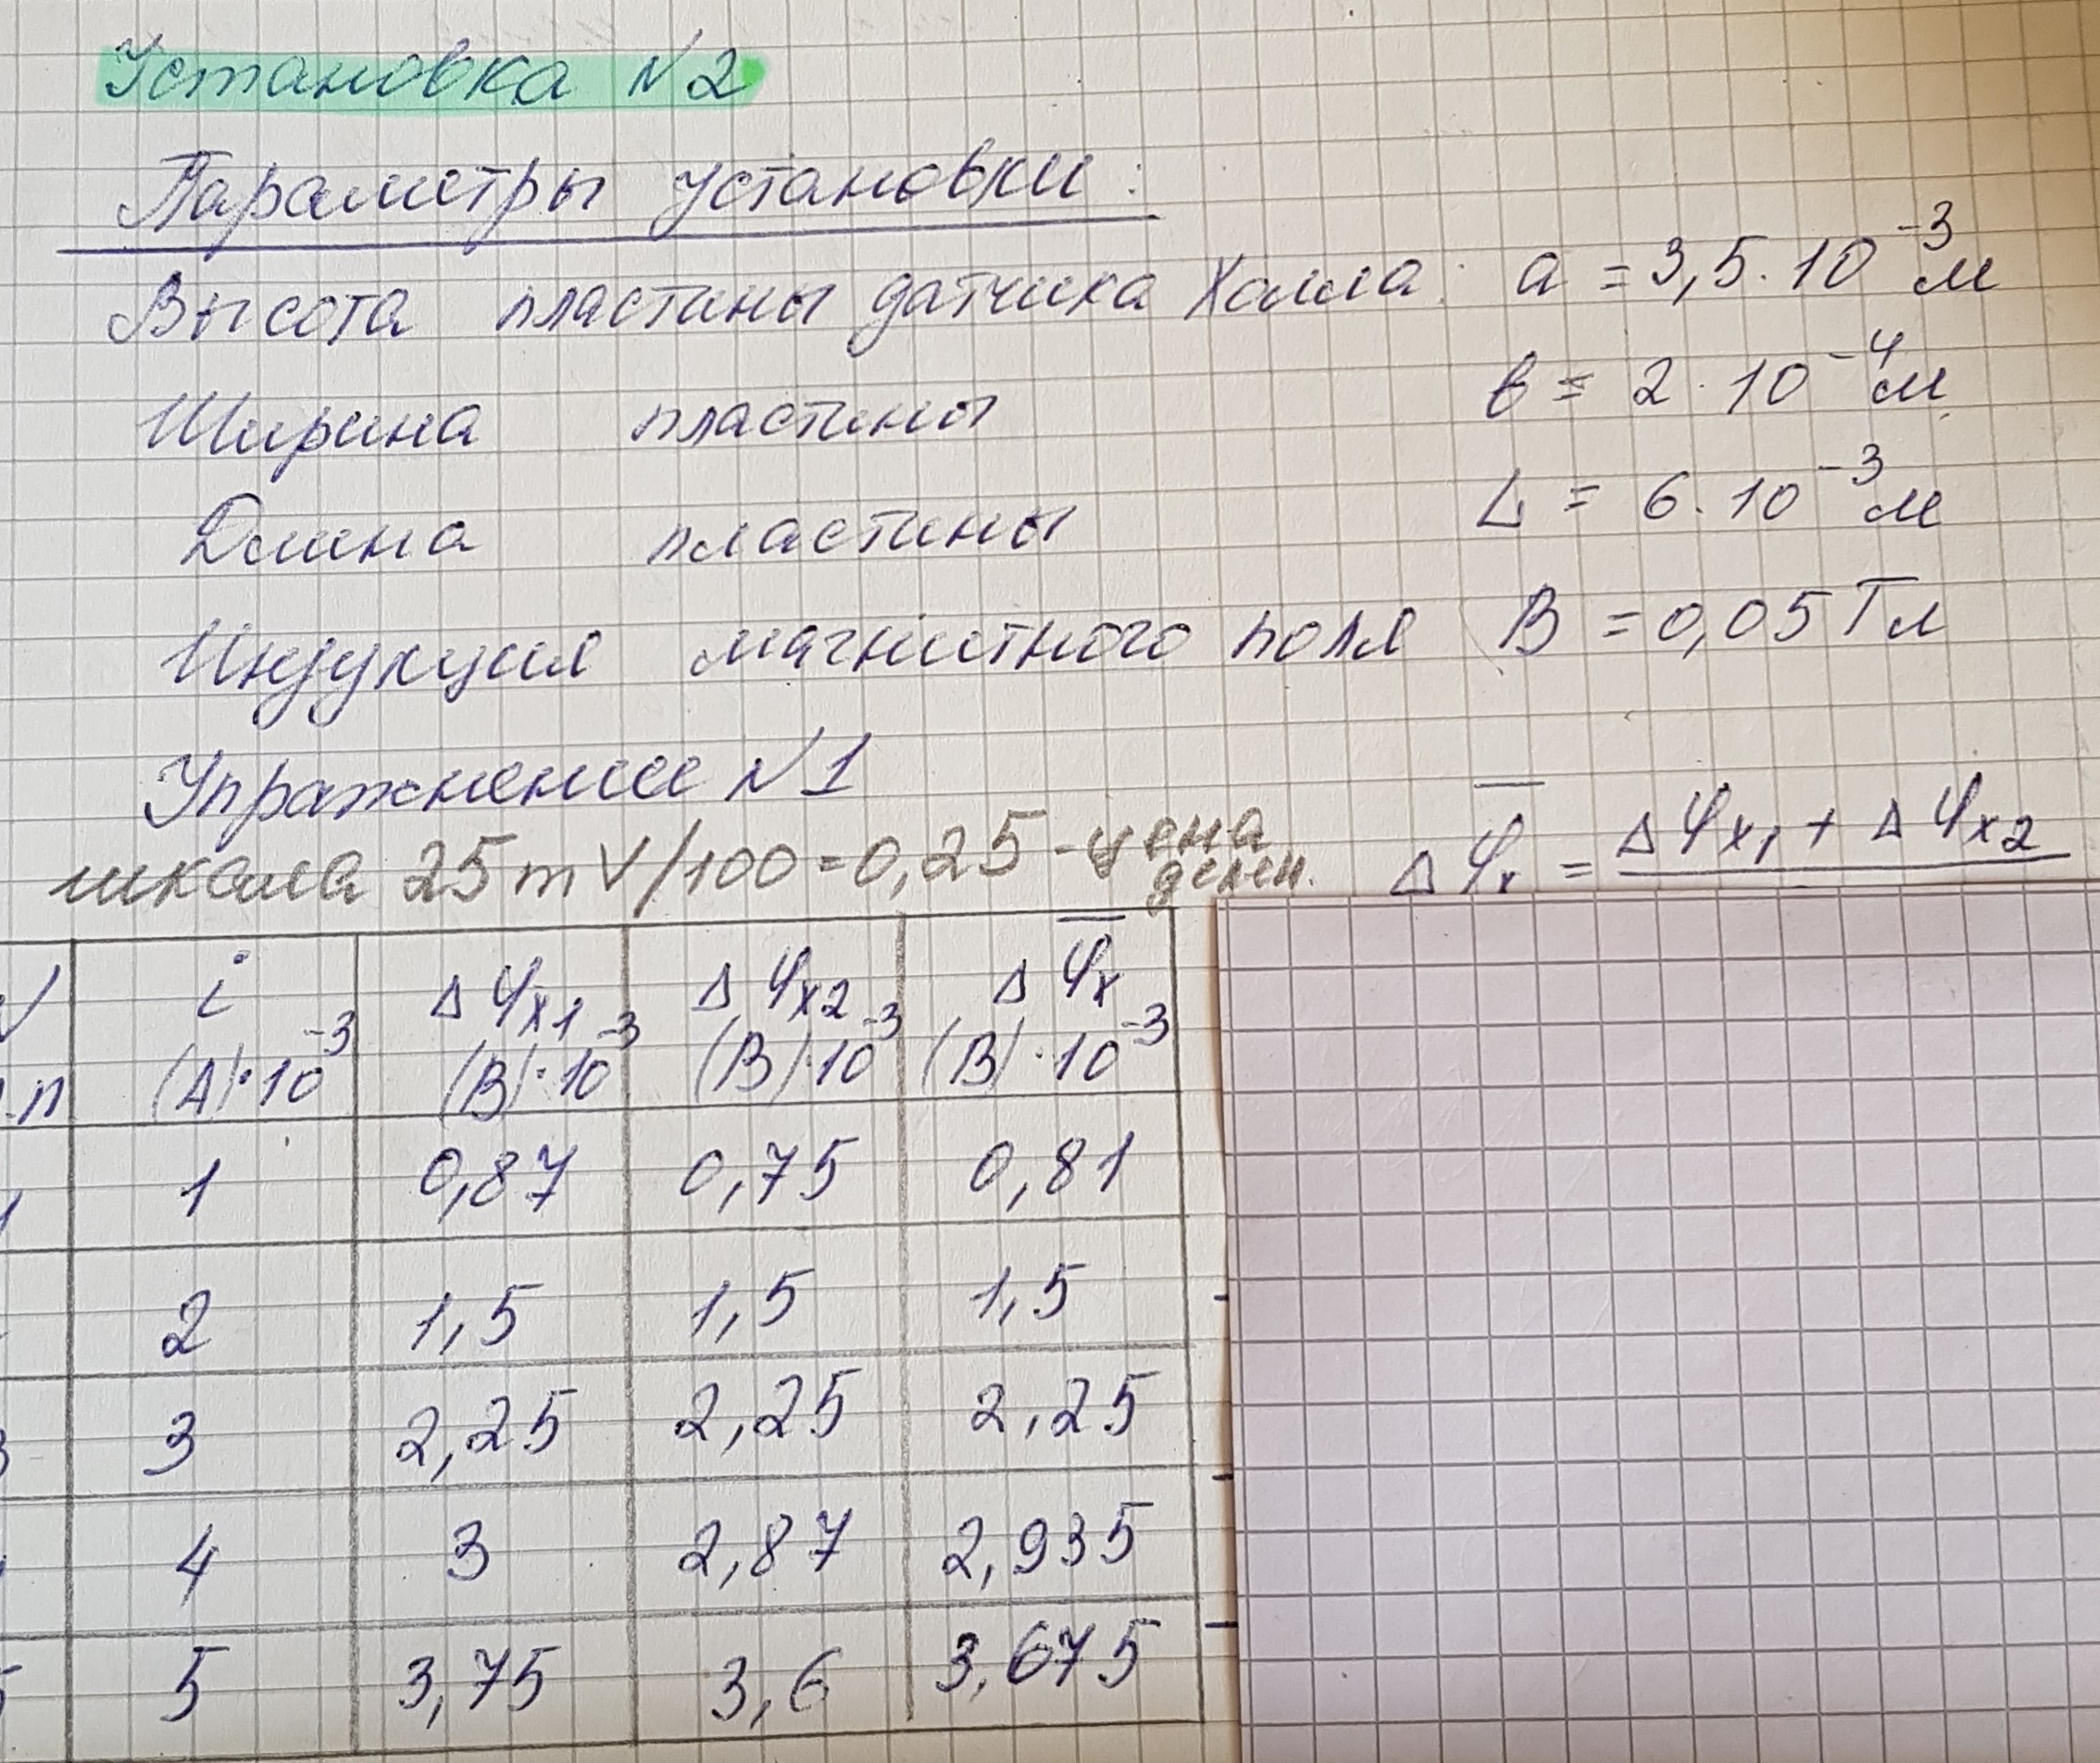 Установка №2
Параметры установки:
Высота пластины датчика Холла: a = 3,5·10⁻³ м
Ширина пластины b = 2·10⁻⁴ м
Длина пластины L = 6·10⁻³ м
Индукция магнитного поля B = 0,05 Тл
Упражнение №1
шкала 25 mV/100 = 0,25 - цена делен.
Δφx = Δφx1 + Δφx2
i (A)·10⁻³ Δφx1 (В)·10⁻³ Δφx2 (В)·10⁻³ Δφx (В)·10⁻³
1 0,87 0,75 0,81
2 1,5 1,5 1,5
3 2,25 2,25 2,25
4 3 2,87 2,935
5 3,75 3,6 3,675